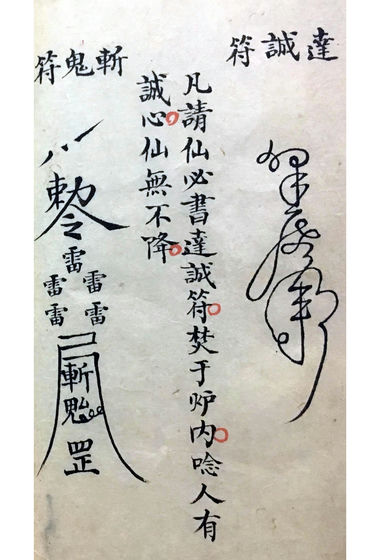 達誠符
凡請仙必書達誠符焚于炉内唸人有
誠心仙無不降
斬鬼符
敕令
雷
雷雷
雷雷
斬鬼
罡